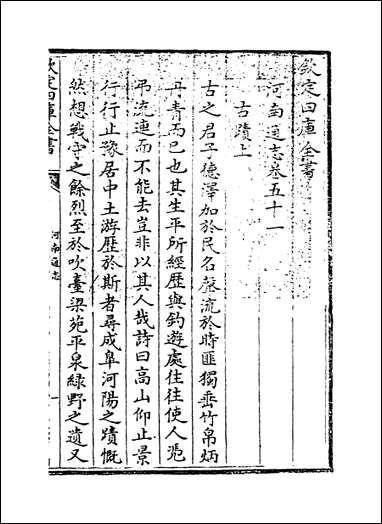 欽定四庫全書
河南通志卷五十一
古蹟上
古之君子德澤加於民名聲流於時匪獨垂竹帛炳
丹青而已也其生平所經歷與釣遊處往往使人憑
弔流連而不能去豈非以其人哉詩曰高山仰止景
行行止豫居中土游歷於斯者尋成臯河陽之蹟慨
然想戰守之餘烈至於吹臺梁苑平泉綠野之遺又
欽定四庫全書
河南通志
一